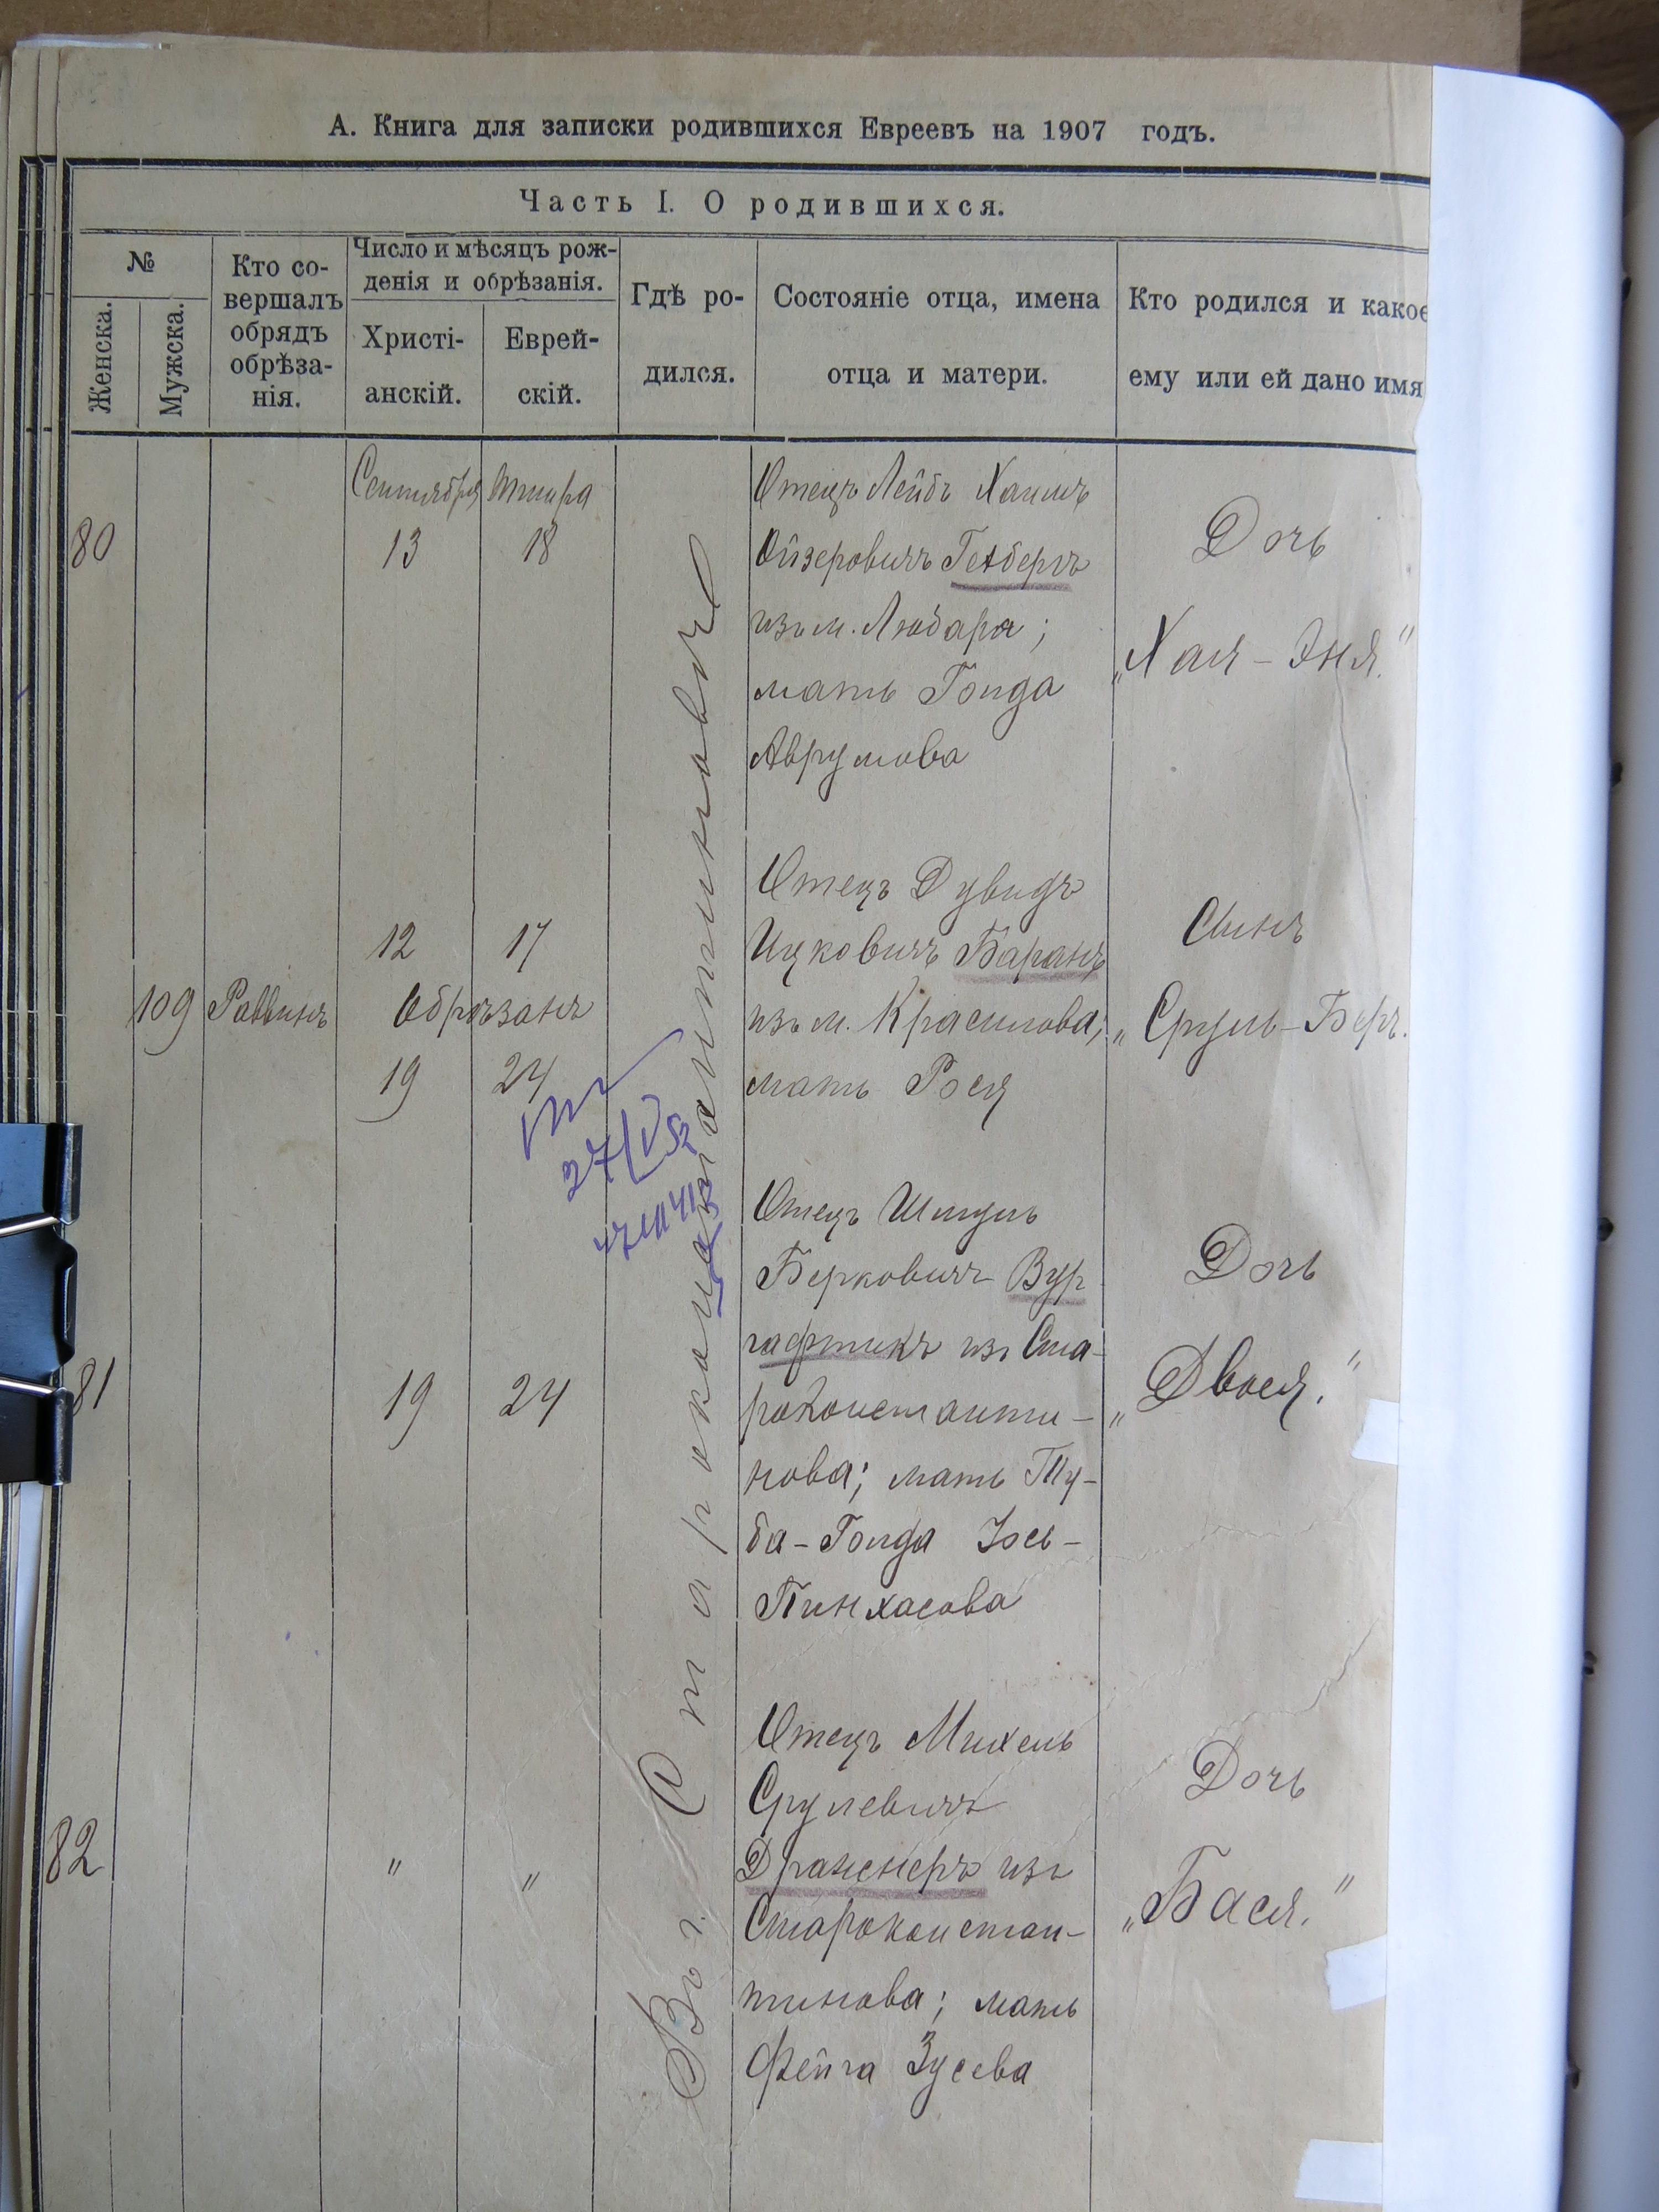 А. Книга для записки родившихся Евреевъ на 1907 годъ.
Часть I. О родившихся.
№
Женска.
Мужска.
Кто со-
вершалъ
обрядъ
обрѣза-
нія.
Число и мѣсяцъ рож-
денія и обрѣзанія.
Христі-
анскій.
Еврей-
скій.
Гдѣ ро-
дился.
Состояніе отца, имена
отца и матери.
Кто родился и какое
ему или ей дано имя
Въ г. Староконстантиновѣ
80
Сентября Тишра
13 18
Отецъ Лейбъ Хаимъ
Ойзеровичъ Гехбергъ
изъ м. Любара;
мать Голда
Аврумова
Дочь
„Хая-Эня."
109 Раввинъ
12 17
Обрѣзанъ
19 24
Отецъ Дувидъ
Ицковичъ Баранъ
изъ м. Красилова;
мать Рося
Сынъ
„Сруль-Беръ.
27/V 52
81
19 24
Отецъ Шмуль
Берковичъ Вур
гафтикъ изъ Ста-
роконстанти-
нова; мать Ту-
ба-Голда Іось-
Пинхасова
Дочь
„Двося."
82
" "
Отецъ Михель
Срулевичъ
Дражнеръ изъ
Староконстан-
тинова; мать
Фейга Зусева
Дочь
„Бася."